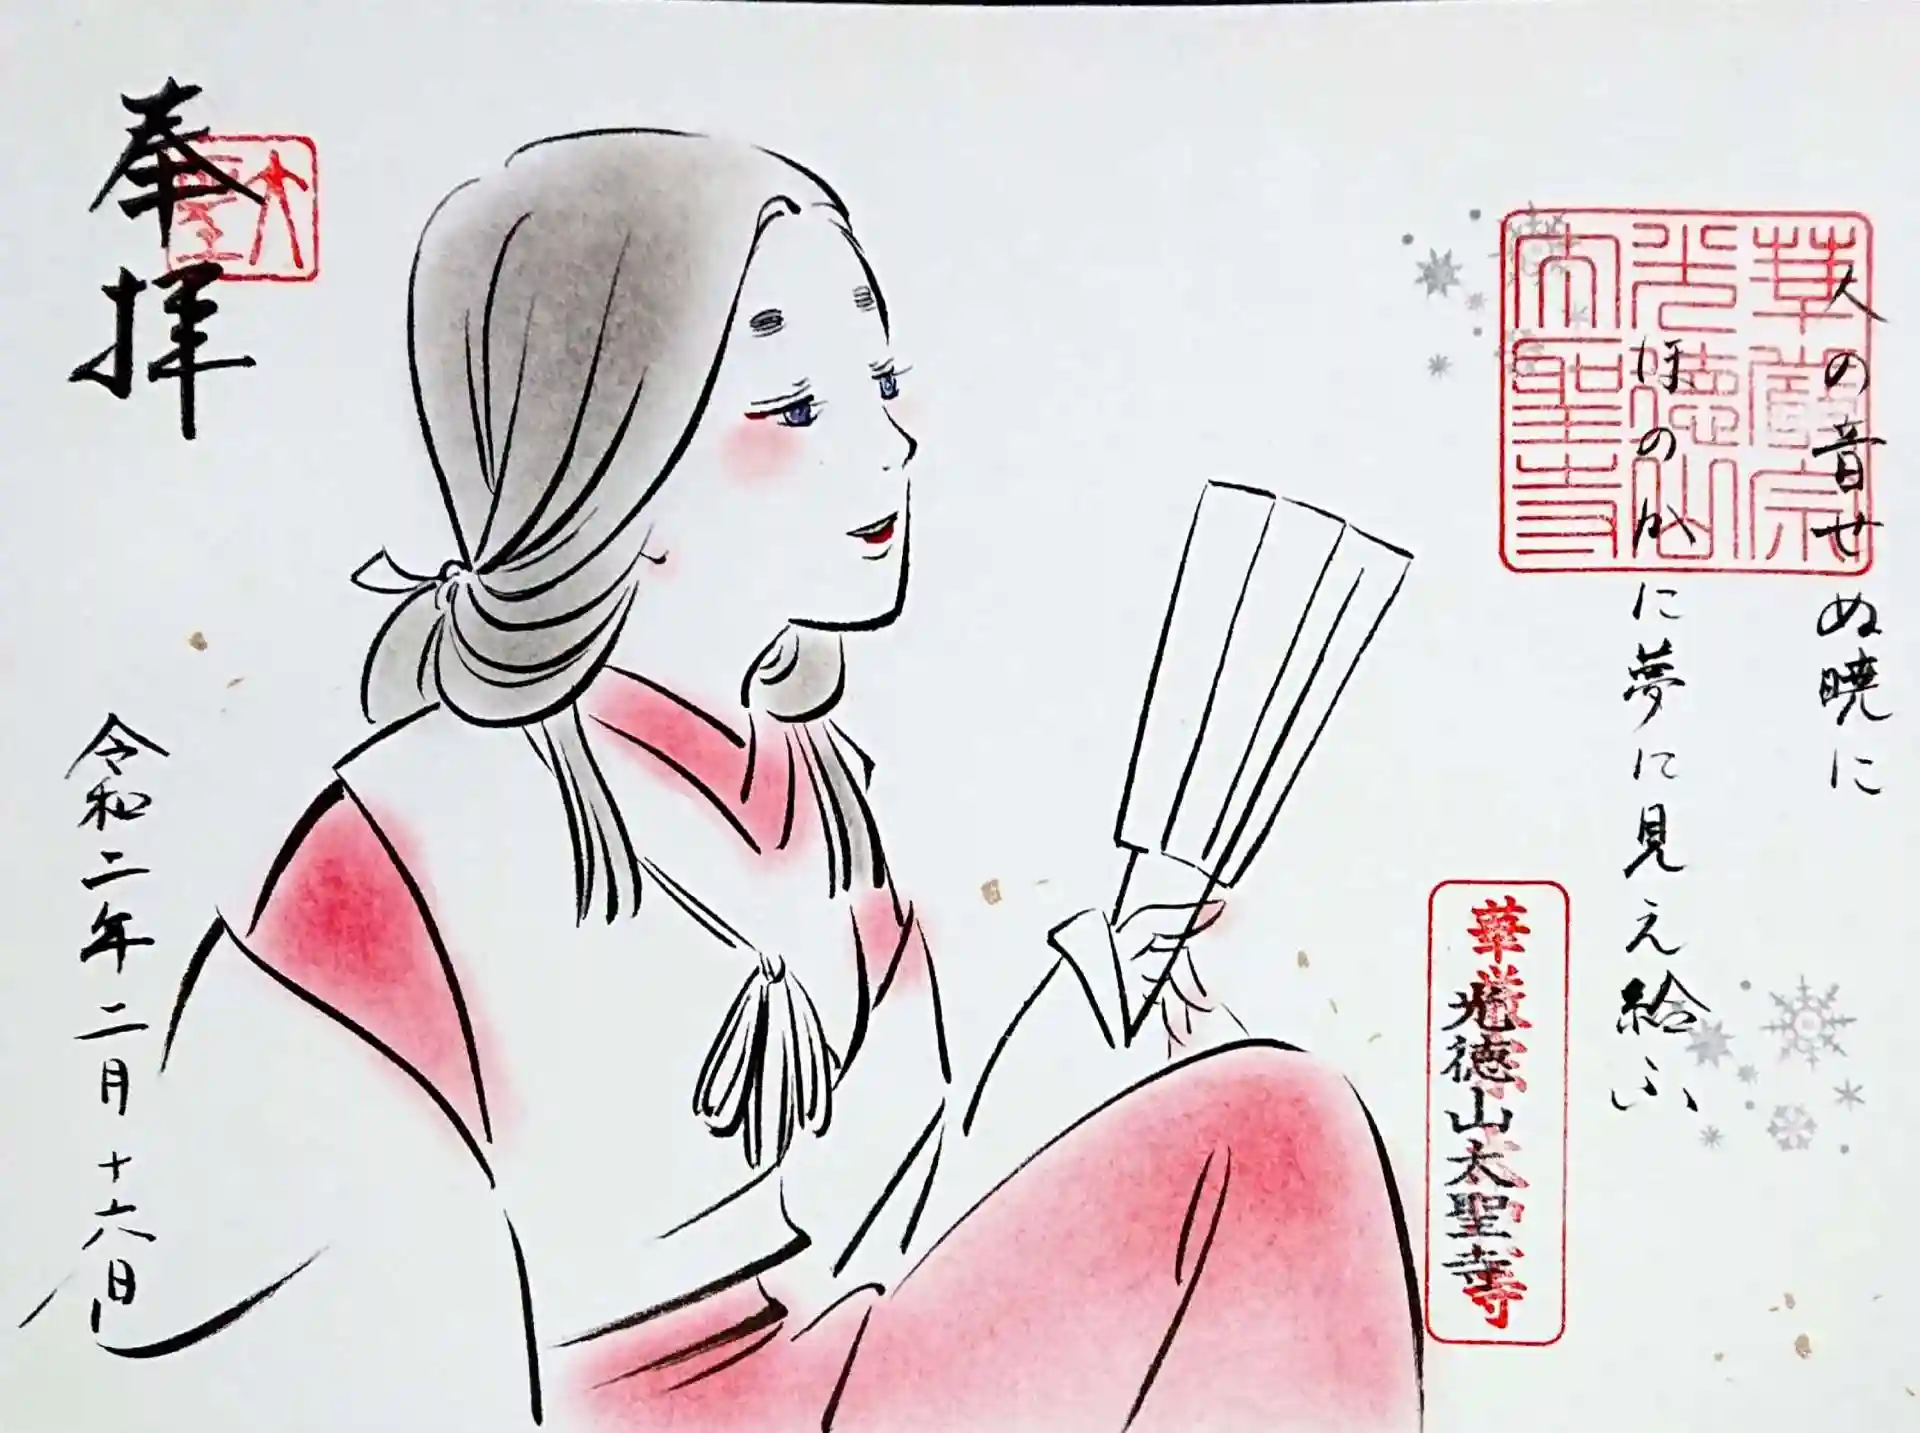 人の音せぬ暁に
ほのかに夢に見え給ふ
華厳宗
光徳山
太聖寺
光徳山太聖寺
奉拝
令和二年二月十六日